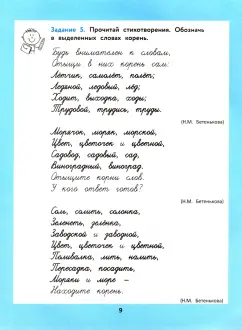 Задание 5. Прочитай стихотворения. Обозначь
в выделенных словах корень.
Будь внимателен к словам,
Отыщи в них корень сам:
Лётчик, самолёт, полёт;
Ледяной, ледовый, лёд;
Ходит, выходка, ходы;
Трудовой, трудись, труды.
(Н.М. Бетенькова)
Морячок, моряк, морской,
Цвет, цветочек и цветной,
Садовод, садовый, сад,
Виноградный, виноград.
Отыщите корни слов.
У кого ответ готов?
(Н.М. Бетенькова)
Соль, солить, солонка,
Зеленеть, зелёнка,
Заводской и заводной,
Цвет, цветочек и цветной,
Поливалка, лить, налить,
Пересадка, посадить,
Моряки и море –
Находите корень.
(Н.М. Бетенькова)
9